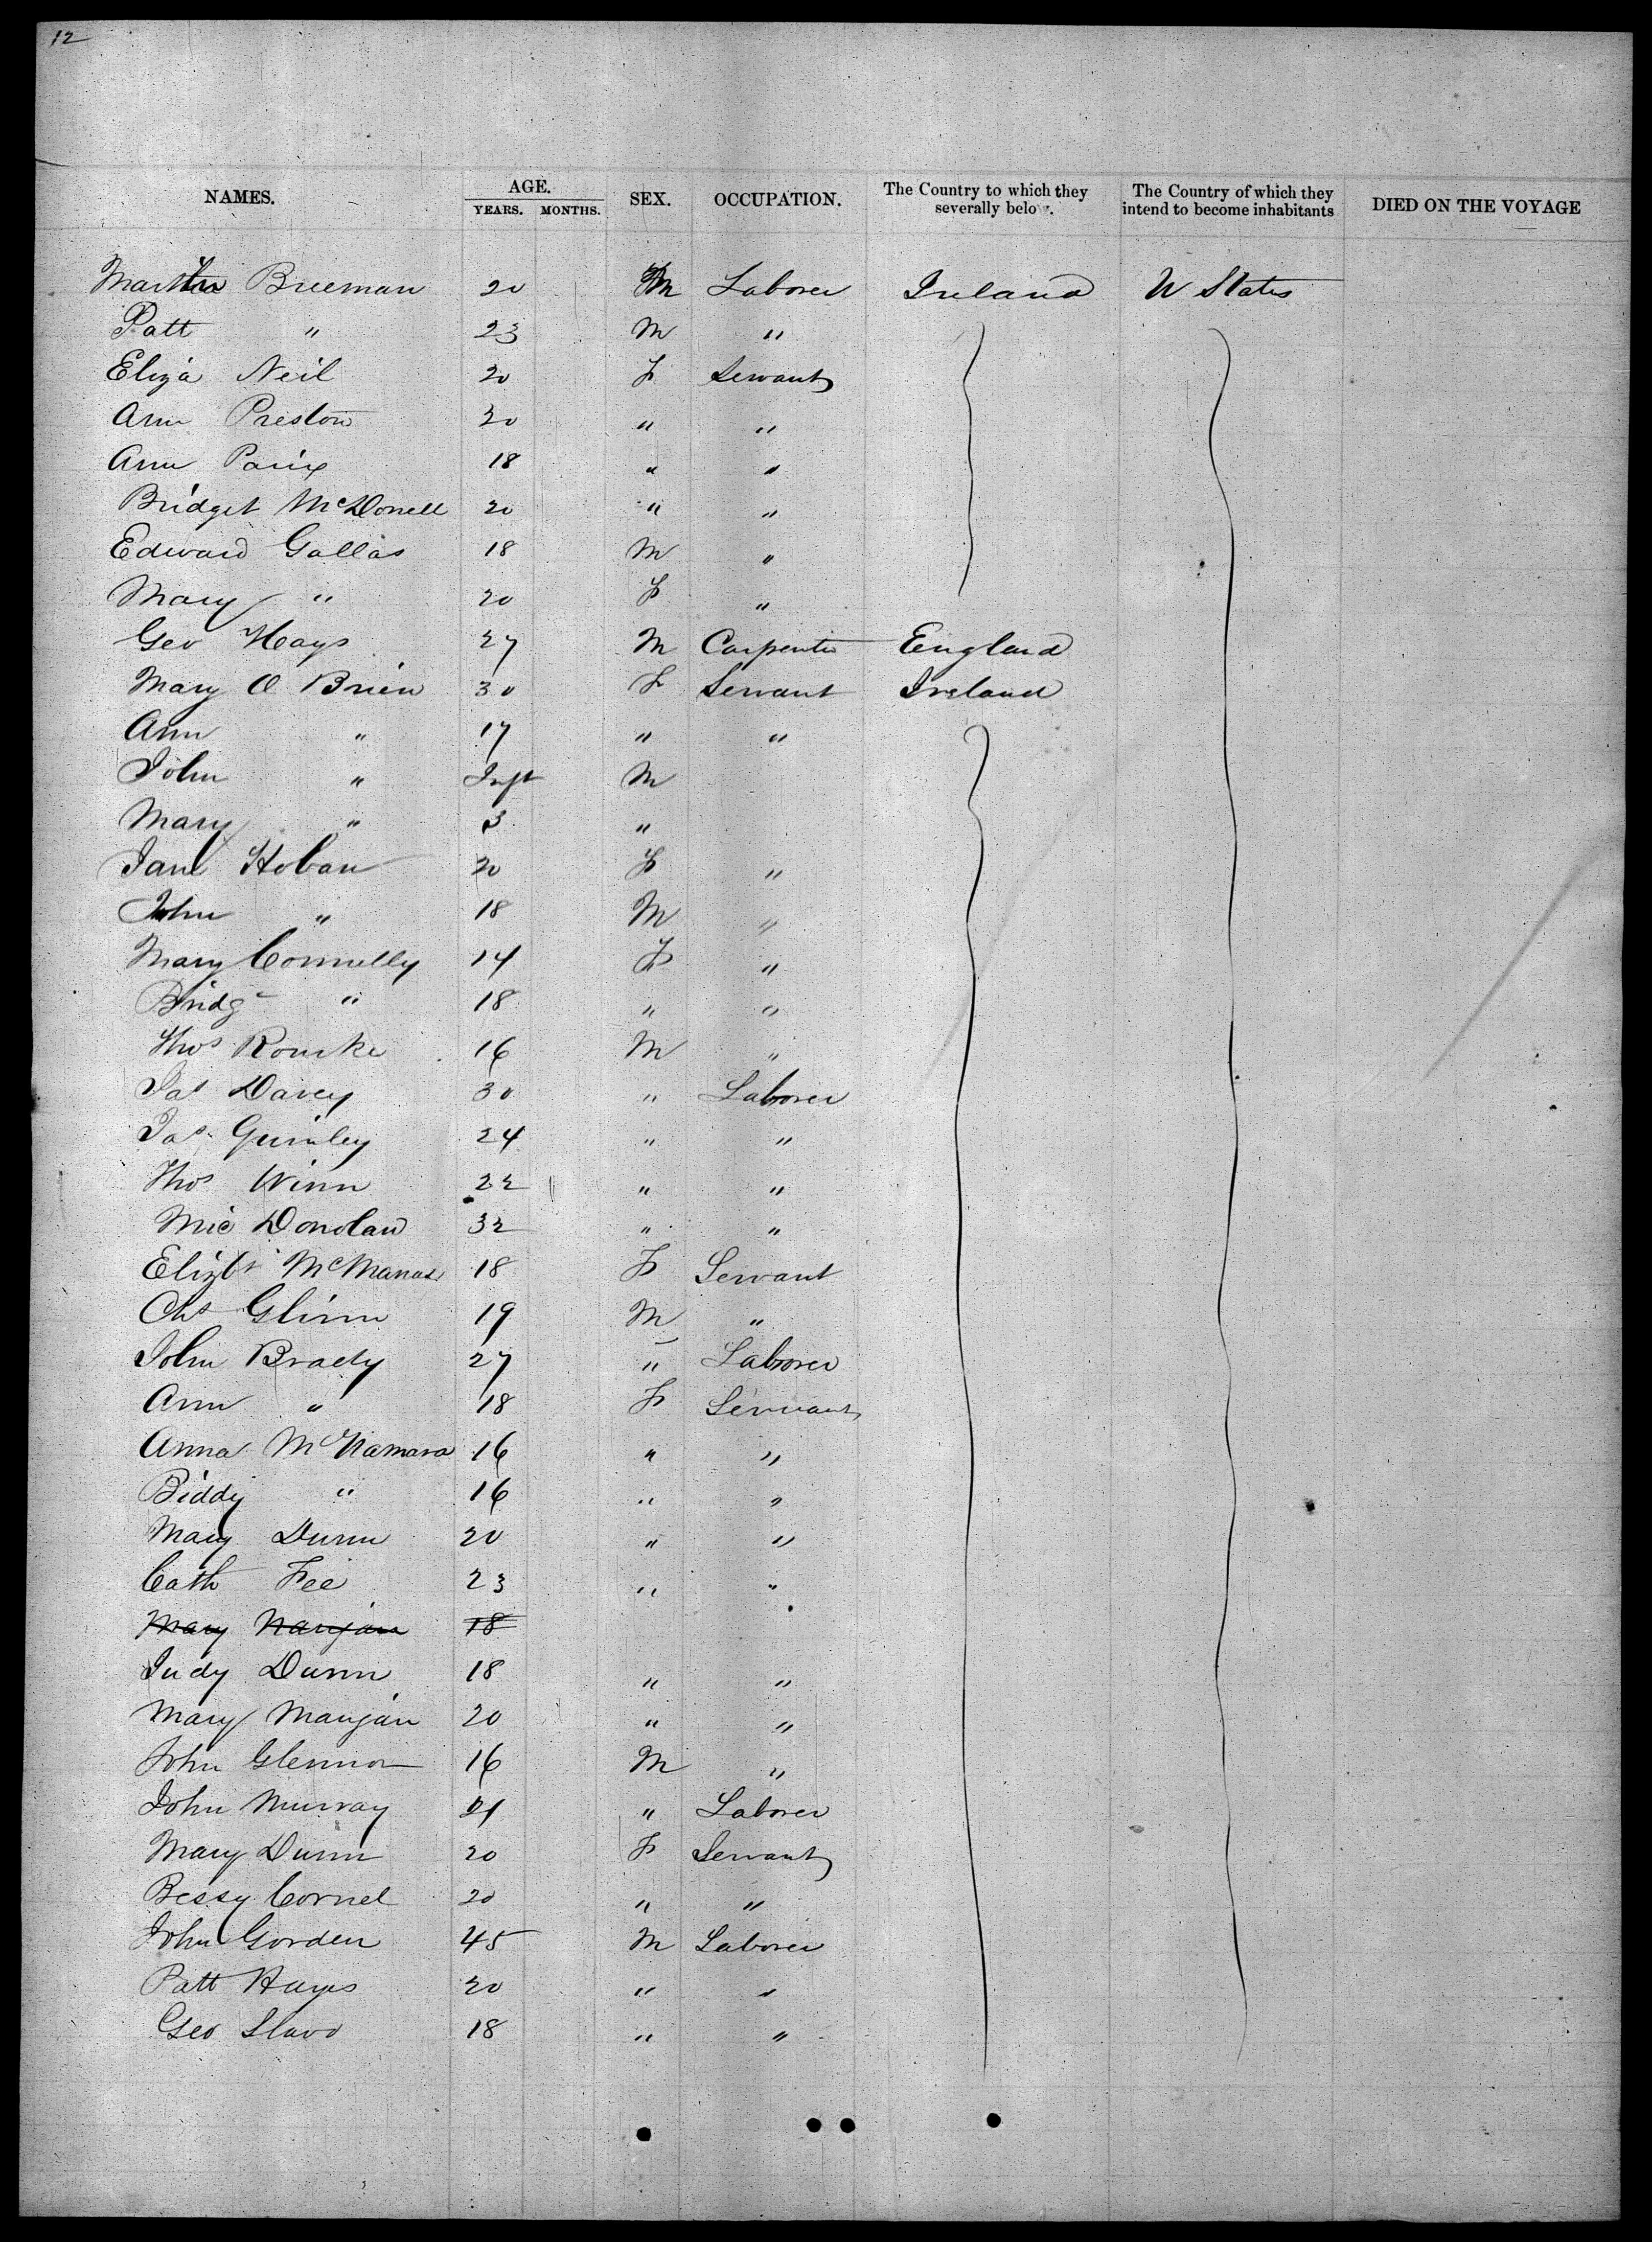 12
NAMES. AGE. YEARS. MONTHS. SEX. OCCUPATION. The Country to which they severally belo . The Country of which they intend to become inhabitants DIED ON THE VOYAGE
Martin Breeman 20 M Laborer Ireland U States
Patt " 23 M "
Eliza Neil 20 F Servant
Ann Preston 20 " "
Ann 18 " "
Bridget McDonell 20 " "
Edward Gallas 18 M "
Mary " 20 F "
Geo Hays 27 M Carpenter England
Mary O Brien 30 F Servant Ireland
Ann " 17 " "
John " Inft M
Mary " 3 "
Jane Hoban 20 F "
John " 18 M "
Mary Connelly 14 F "
Bridg " 18 " "
Thos Rourke 16 M "
Pat Davey 30 " Laborer
Jas Quinley 24 " "
Thos Winn 22 " "
Mic Donolan 32 " "
Elizbt McManas 18 F Servant
Chs Glinn 19 M "
John Brady 27 " Laborer
Ann " 18 F Servant
Anna McNamara 16 " "
Biddy " 16 " "
Mary Dunn 20 " "
Cath Fee 23 " "
Mary Nangan 18
Judy Dunn 18 " "
Mary Mangan 20 " "
John Glennon 16 M "
John Murray 21 " Laborer
Mary Dunn 20 F Servant
Bessy Cornel 20 " "
John Gorden 45 M Laborer
Patt Hayes 20 " "
Geo 18 " "